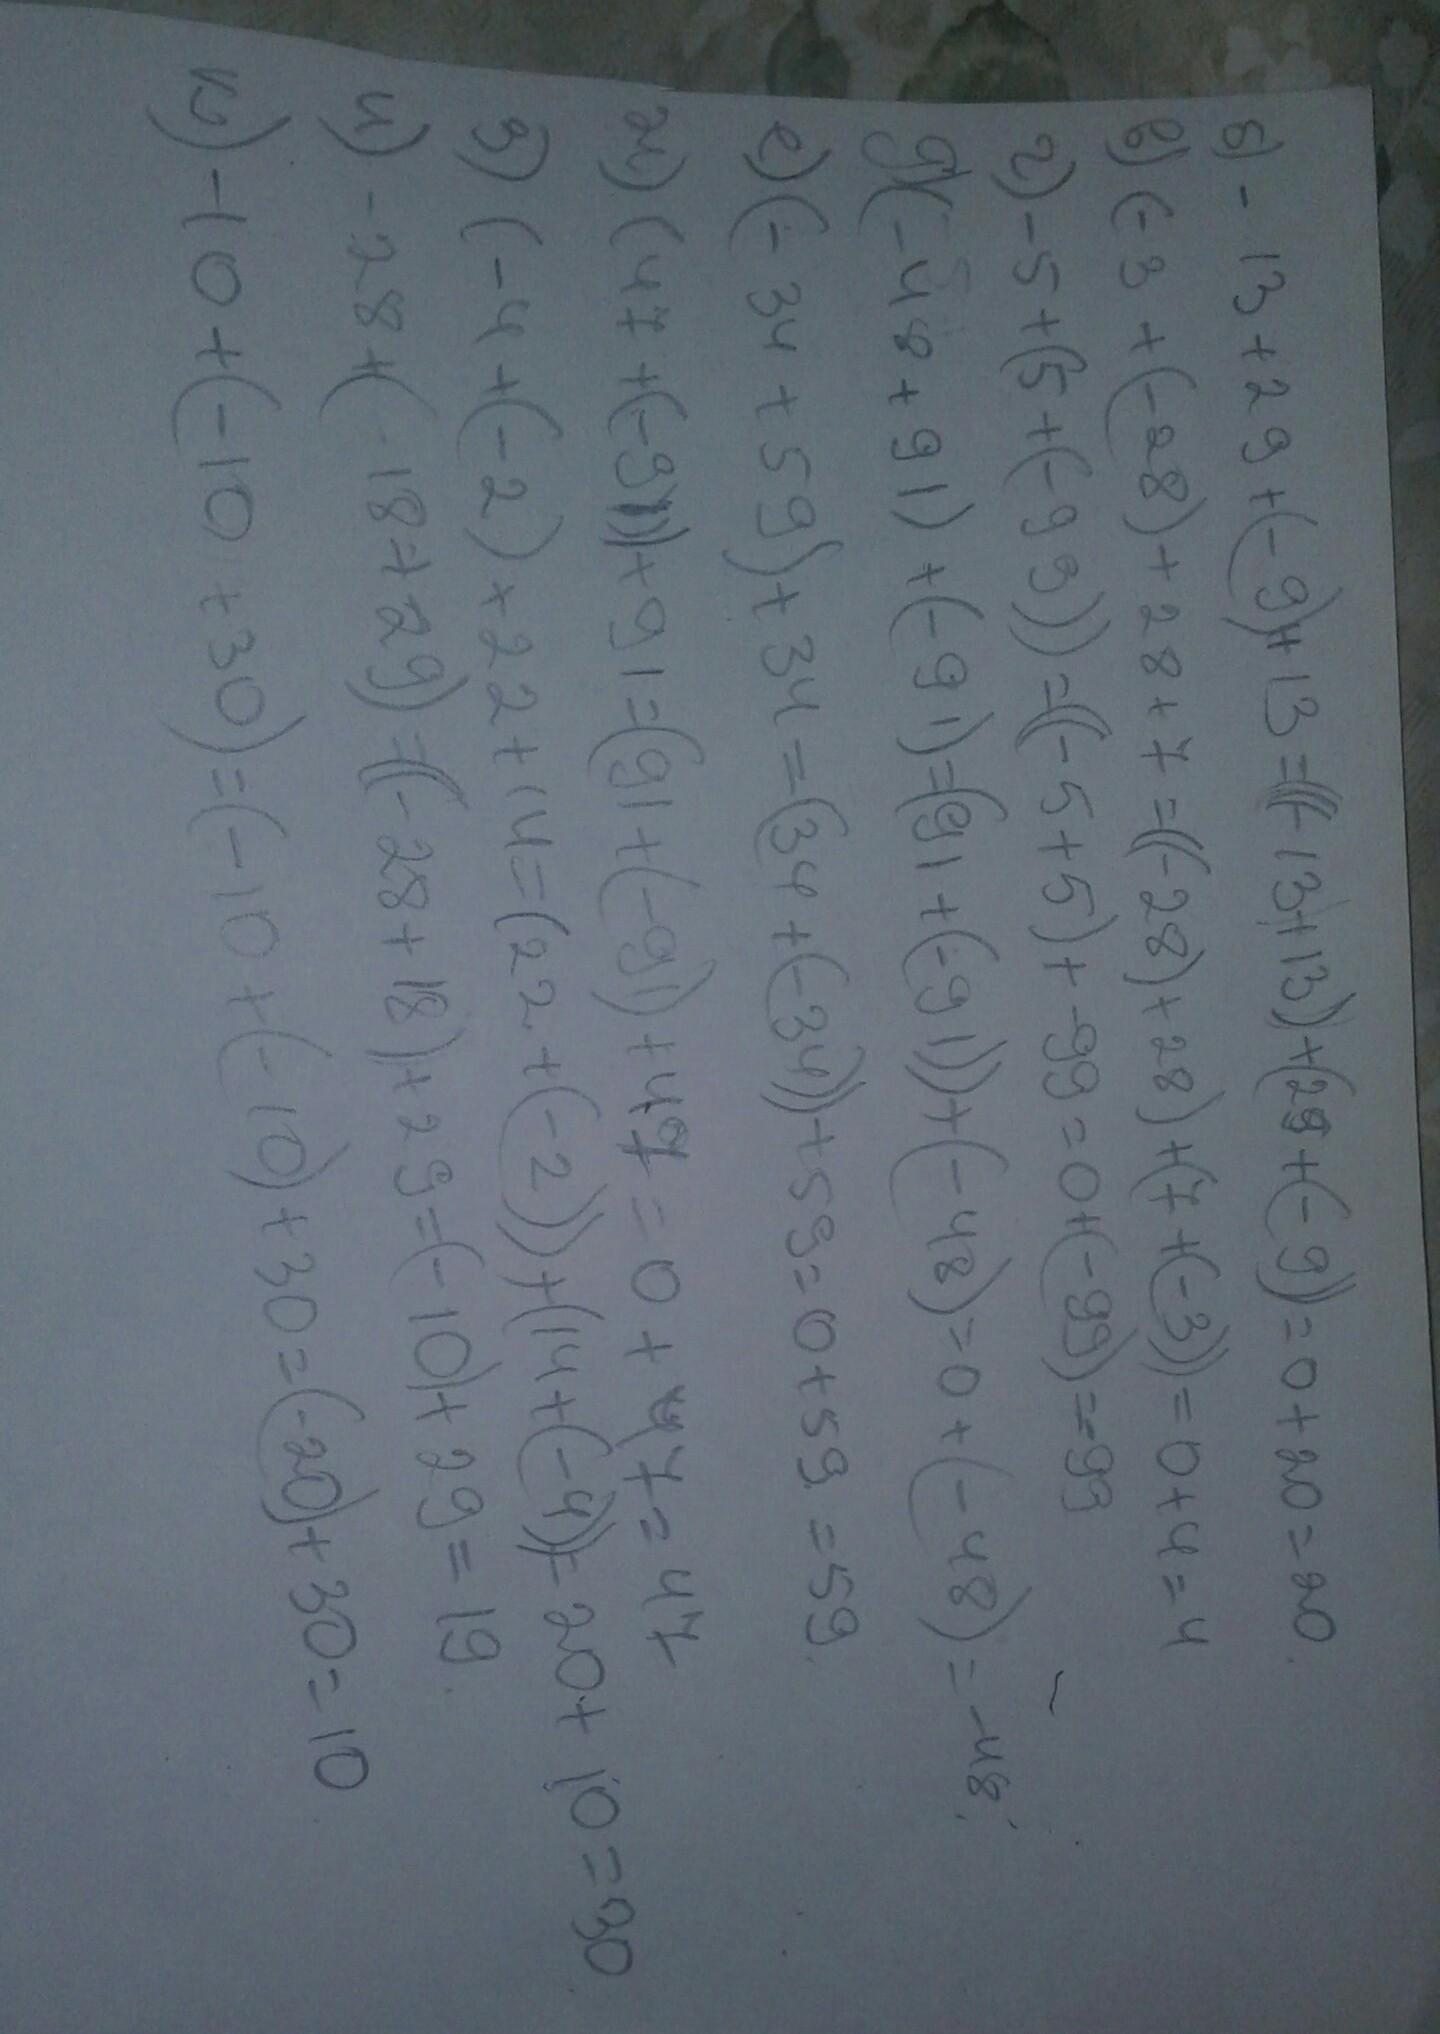 б) -13+29+(-9)+13=((-13+13)+(29+(-9))=0+20=20.
в) (-3+(-28)+28+7=((-28)+28)+(7+(-3))=0+4=4
г) -5+(5+(-99))=((-5+5)+-99=0+(-99)=-99
д) (-48+91)+(-91)=(91+(-91))+(-48)=0+(-48)=-48.
е) (-34+59)+34=(34+(-34))+59=0+59=59.
ж) (47+(-91))+91=(91+(-91)+47=0+47=47
з) (-4+(-2)+22+14=(22+(-2))+(14+(-4))=20+10=30
и) -28+(-18+29)=((-28+18)+29=(-10)+29=19.
к) -10+(-10+30)=(-10+(-10)+30=(-20)+30=10